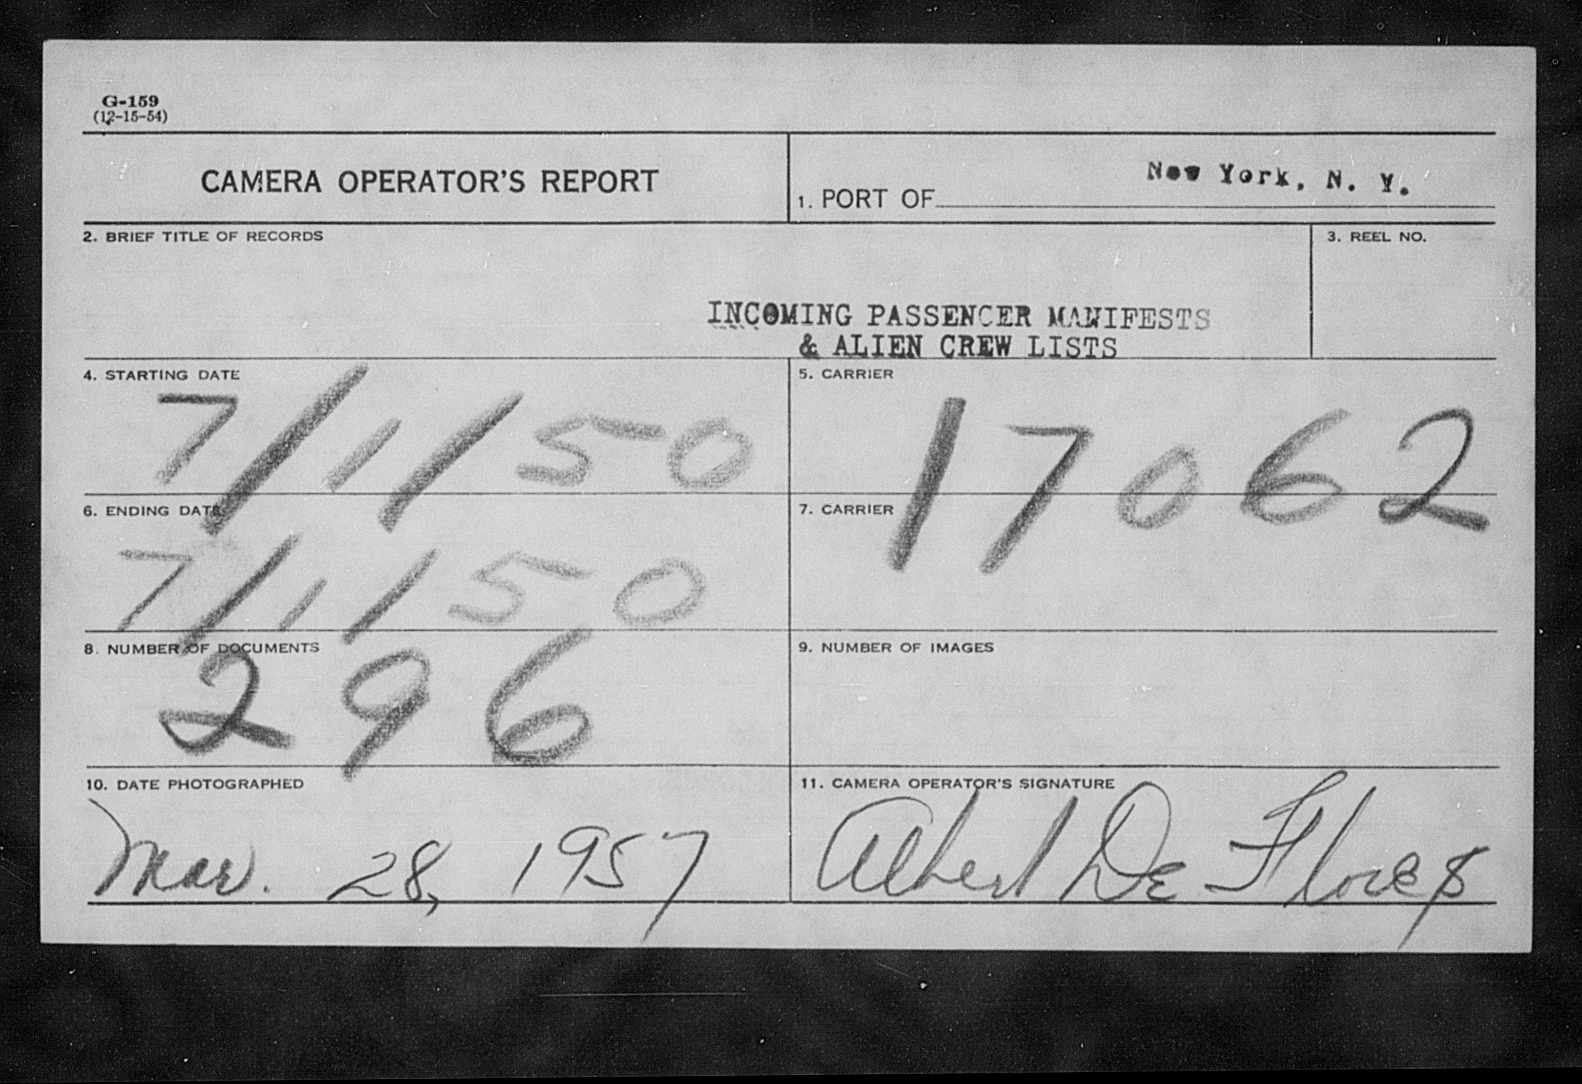 G-159
(12-15-54)
CAMERA OPERATOR'S REPORT
1. PORT OF New York, N. Y.
2. BRIEF TITLE OF RECORDS
3. REEL NO.
INCOMING PASSENGER MANIFESTS
& ALIEN CREW LISTS
4. STARTING DATE
7/1/50
5. CARRIER
17062
6. ENDING DATE
7/1/50
7. CARRIER
8. NUMBER OF DOCUMENTS
296
9. NUMBER OF IMAGES
10. DATE PHOTOGRAPHED
Mar. 28, 1957
11. CAMERA OPERATOR'S SIGNATURE
Albert De Flores